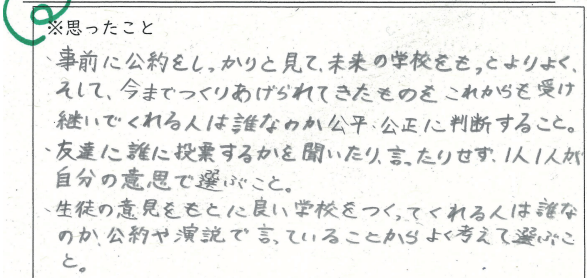 ※思ったこと
・事前に公約をしっかりと見て、未来の学校をもっとよりよく、
そして、今までつくりあげられてきたものをこれからも受け
継いでくれる人は誰なのか公平・公正に判断すること。
・友達に誰に投票するかを聞いたり、言ったりせず、1人1人が
自分の意思で選ぶこと。
・生徒の意見をもとに良い学校をつくってくれる人は誰な
のか、公約や演説で言っていることからよく考えて選ぶこ
と。